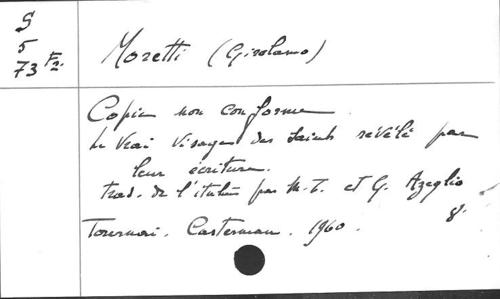 S
5
73 Fr.
Moretti (Girolamo)
Copie non conforme
Le Vrai Visage des Saints révélé par
leur écriture.
trad. de l'italien par M.T. et G. Azeglio
Tournai. Casterman. 1960. 8°.